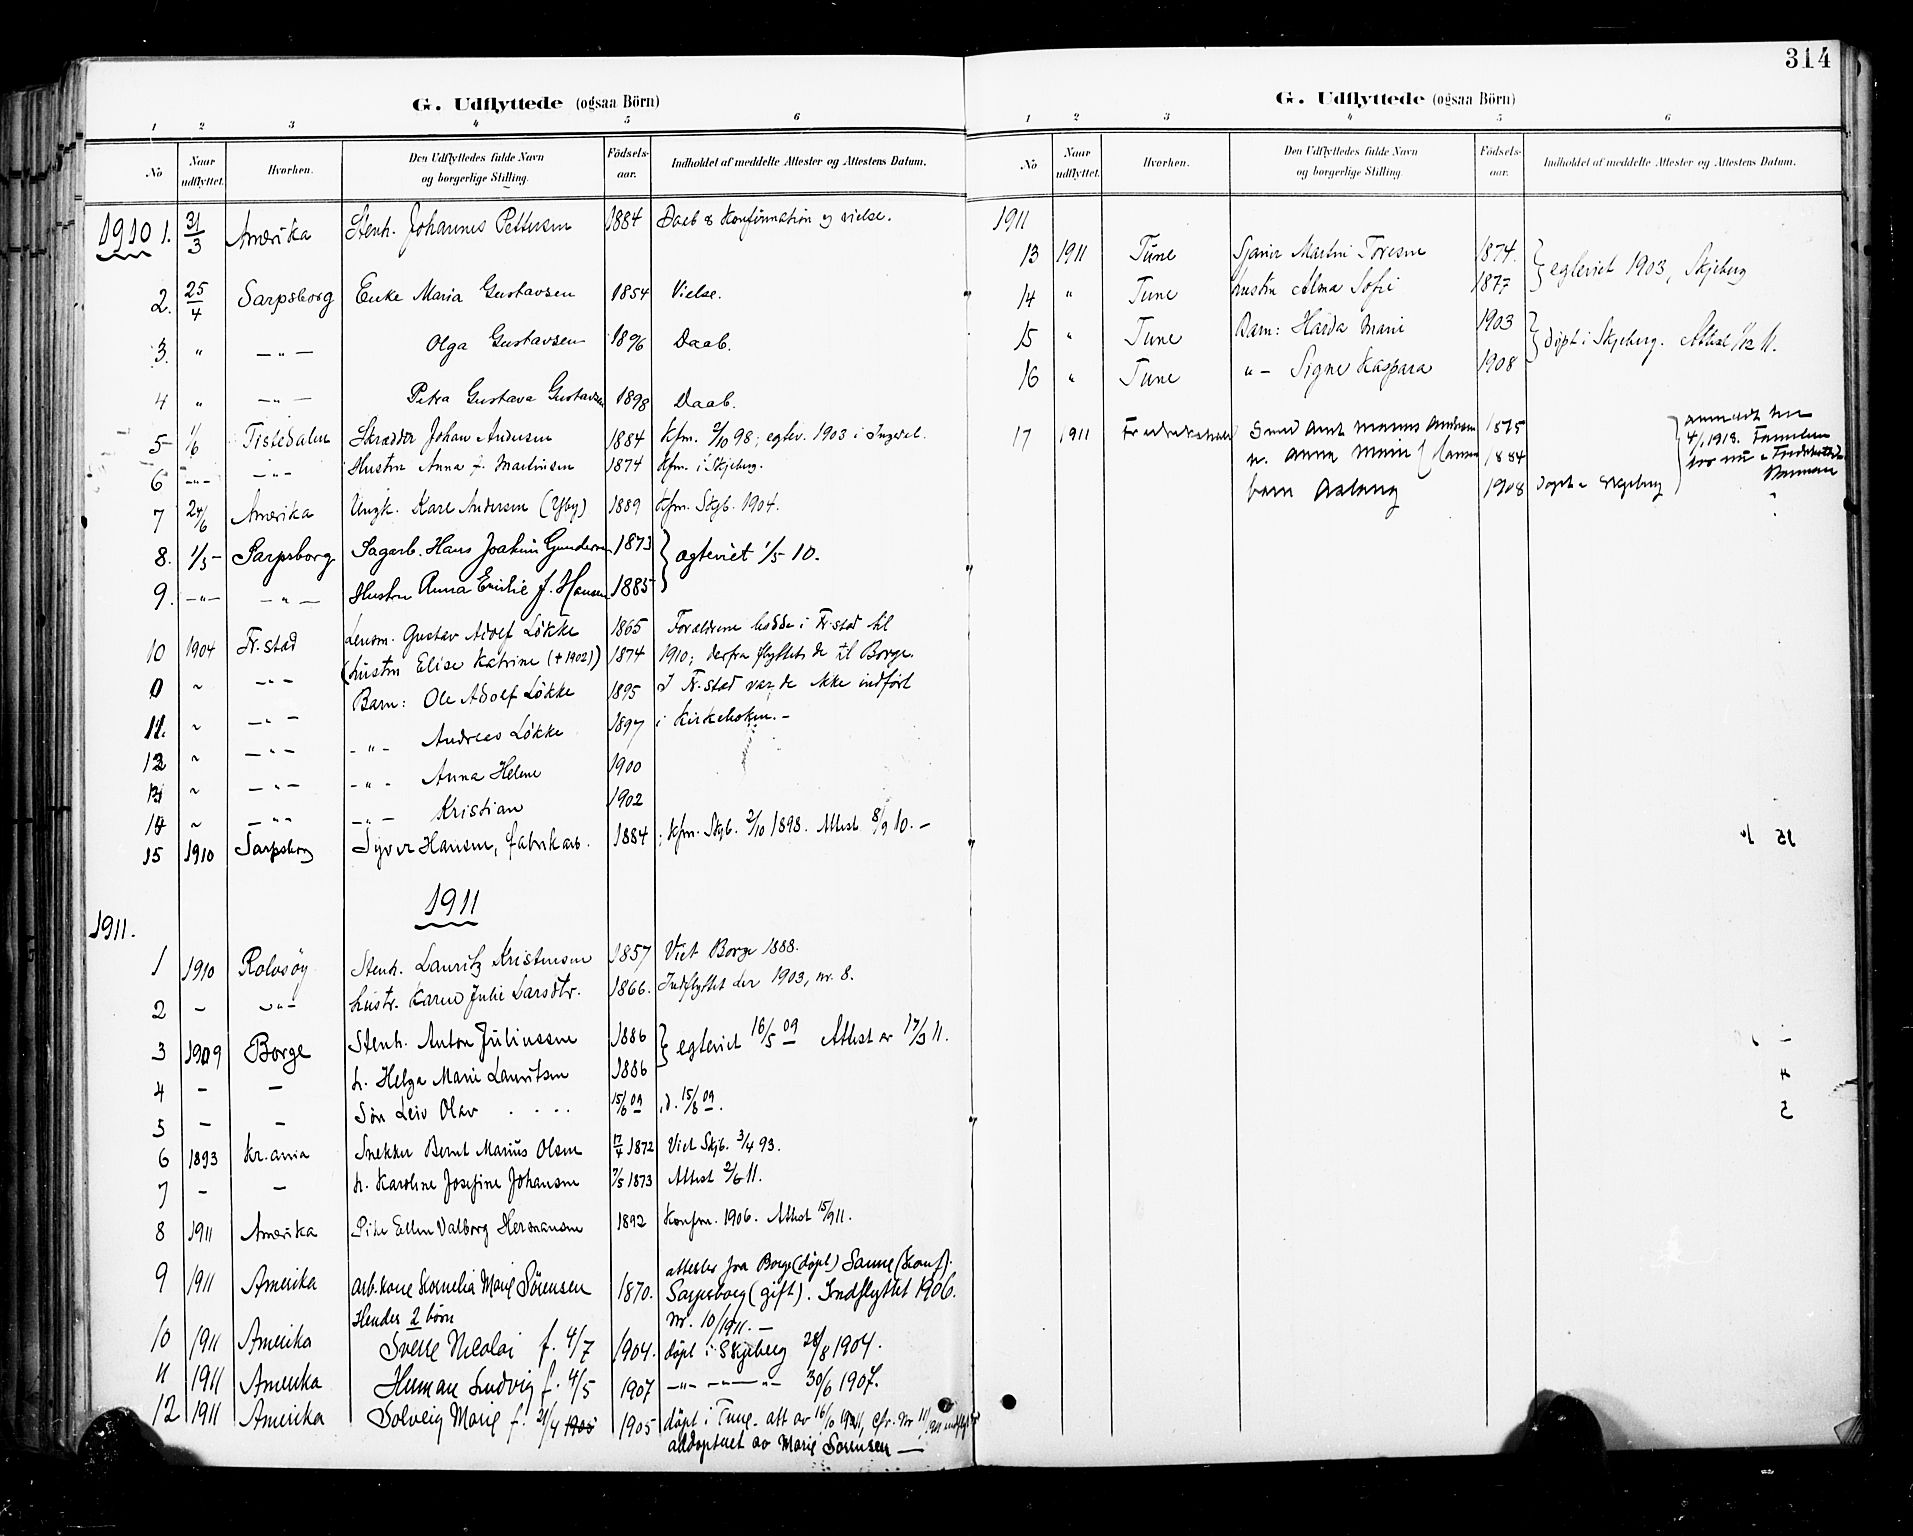 314
G. Udflyttede (ogsaa Börn)
1 2 3 4 5 6
No Naar udflyttet. Hvorhen. Den Udflyttedes fulde Navn og borgerlige Stilling. Födsels-aar. Indholdet af meddelte Attester og Attestens Datum.
1910 1. 31/3 Amerika Stenh. Johannes Pettersen 1884 Daab & Konfirmation og vielse.
2. 25/4 Sarpsborg Enke Maria Gustavsen 1854 Vielse.
3. " — " — Olga Gustavsen 1896 Daab.
4 " — " — Petra Gustava Gustavsen 1898 Daab.
5 1/6 Tistedalen Skrædder Johan Andersen 1884 Kfm. 2/10 98; egtev. 1903 i
6 -"- -"- Hustru Anna f. Martinsen 1874 Kfm. i Skjeberg.
7 24/6 Amerika Ungk. Karl Andersen (Ysby) 1889 Kfm. Skjb. 1904.
8. 1/5 - Sarpsborg Sagarb. Hans Joakim Gundersen 1873 } ægteviet 1/5 10.
9. -"- — " — Hustru Anna Emilie f. Hansen 1885
10 1904 Fr.stad Lensm. Gustav Adolf Løkke 1865 Forældrene bodde i Fr.stad til
0 " -"- (hustru Elise Katrine (+1902)) 1874 1910; derfra flyttet de til Borge.
11. " -"- Barn: Ole Adolf Løkke 1895 I Fr.stad var de ikke indført
12 " -"- -"- Andreas Løkke 1897 i Kirkeboken. -
13 " -"- -"- Anna Helene 1900
14 " -"- -"- Kristian 1902
15 1910 Sarpsborg Syver Hansen, fabrikarb. 1884 ; Kfm. Skjb. 2/10 1898. Attest 8/9 10. -
1911
1911.
1 1910 Rolvsøy Stenh. Lauritz Kristensen 1857 Viet Borge 1888.
2 - -"- hustr. Karen Julie Larsdtr. 1866. Indflyttet der 1903, nr. 8.
3 1909 Borge Stenh. Anton Juliussen 1886 } egteviet 16/5 09 Attest av 17/3 11.
4 - - h. Helga Marie Lauritsen 1886
5 - - Søn Leiv Olav . . . . 15/6 09 d. 15/8 09.
6 1893 Kr.ania Snekker Bernt Marius Olsen 17/4 1872 Viet Skjb. 3/4 93.
7 - - h. Karoline Josefine Johansen 7/5 1873 Attest 2/6 11.
8 1911 Amerika Pike Ellen Valborg Hermansen 1892 Konfm. 1906. Attest 15/9 11.
9 1911 Amerika arb. kone Kornelia Marie Sørensen 1870. attester fra Borge (døpt) Sanne (konf).
Sarpsborg (gift). Indflyttet 1906.
Hendes 2 børn nr. 10/1911. -
10 1911 Amerika Sverre Nicolai f. 4/7 1904. døpt i Skjeberg 28/8 1904.
11 1911 Amerika Herman Ludvig f. 4/5 1907 -"- -"- 30/6 1907.
12 1911 Amerika Solveig Marie f. 21/4 1905 1905 døpt i Tune. att av 16/10 1911, cfr. Nr 11
addoptuet av Marie Sørensen —
G. Udflyttede (ogsaa Börn)
1 2 3 4 5 6
No Naar udflyttet. Hvorhen. Den Udflyttedes fulde Navn og borgerlige Stilling. Födsels-aar. Indholdet af meddelte Attester og Attestens Datum.
1911
13 1911 Tune Martin Toresen 1874. } egteviet 1903, Skjeberg
14 " Tune hustru Alma Sofie 1877
15 " Tune Barn: Harda Marie 1903 } døpt i Skjeberg. Attest 1/12 11.
16 " Tune " - Signe Kaspara 1908
17 1911 Fredrikshald Smed Amt Marius Andersen 1875 anmeldt her
h. Anna Marie f. Hansen 1884 4/1 1913. Familien
bor nu
barn Aslaug 1908 døpt i Skjeberg